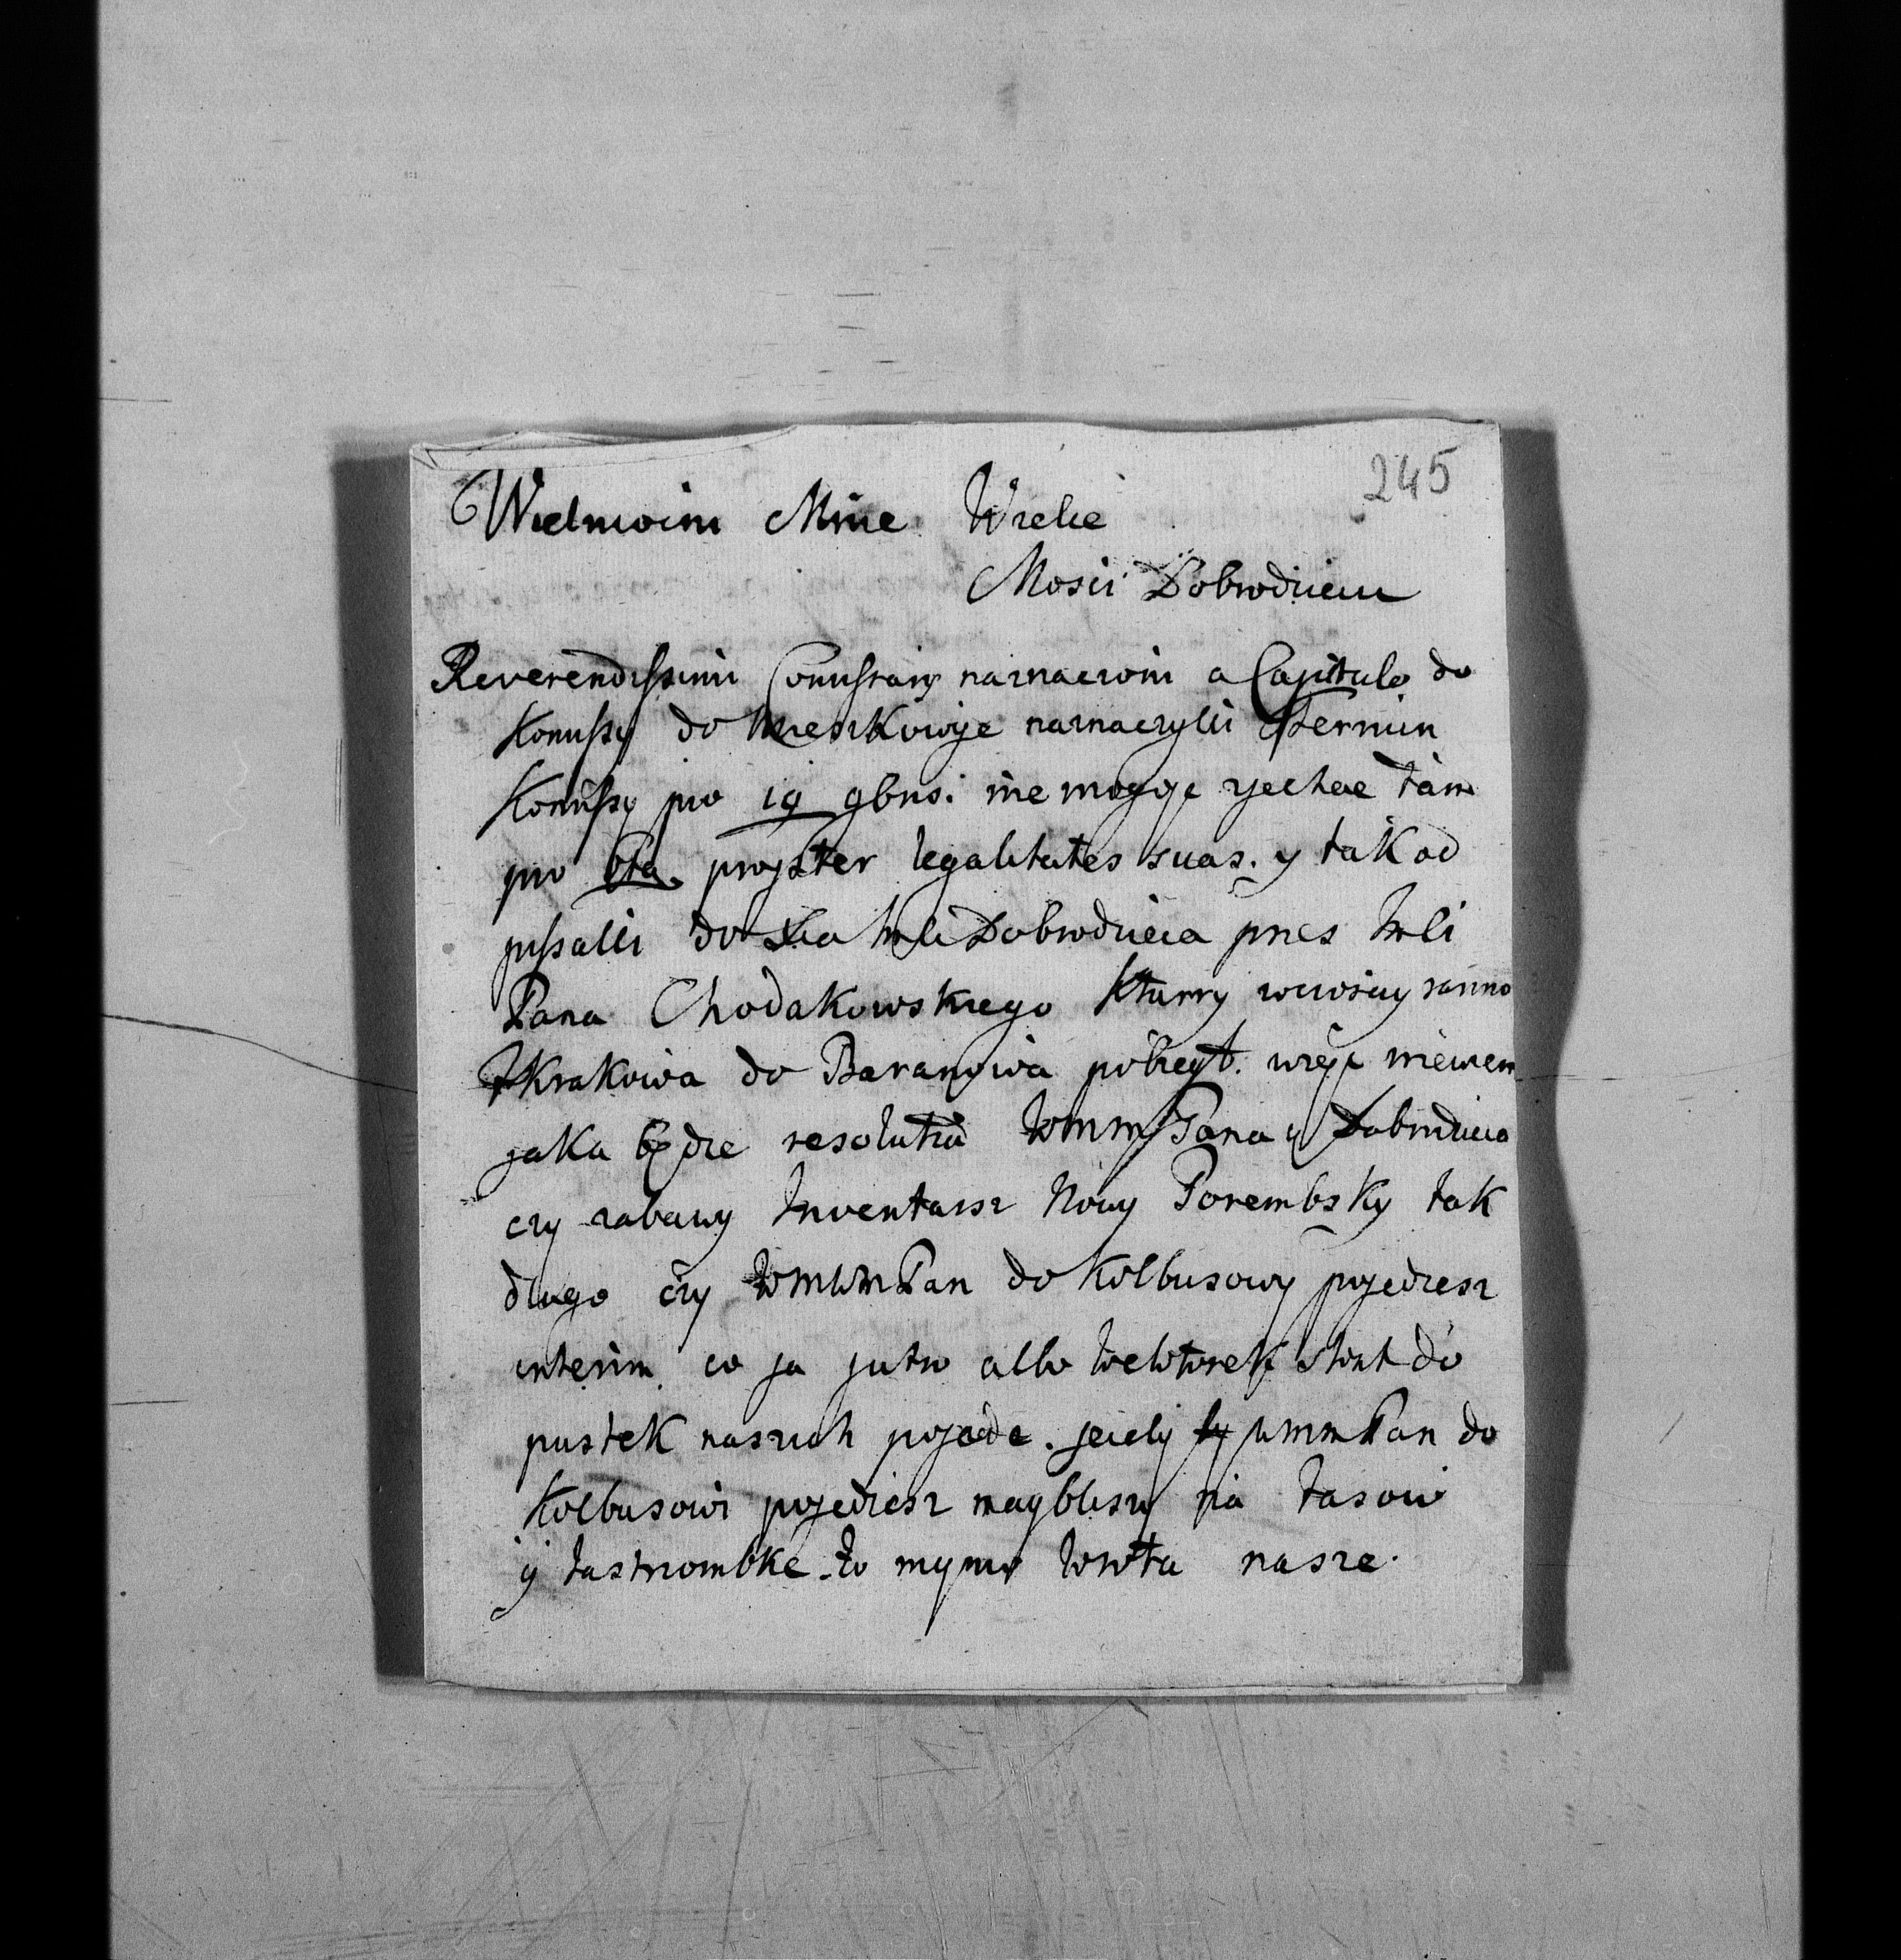 245
Wielmozni Mnie Wielce
Mosci Dobrodzieiu
Reverendissimi Comissarij naznaczoni a Capitulo do
Komissy do naznaczyli Termin
Komissy pro 19 9bris. nie mogąc yechac tam
pro propter legalitates suas. y tak od
pissalli do Dobrodzieia przes Imsci
Pana Chodakowskiego ktury wczosiay ranno
z Krakowa do Baranowa pobiegł. więc niewiem
jaka będzie resolutia WMMPana y Dobrodzieia
czy zabawy Inventarsz Nowy Porembsky tak
dlugo czy WMWMPan do Kolbusowy pojedziesz
interim co ja jutro albo wewtorek stont do
pustek naszych pojade. jeiely WMMPan do
Kolbusowi pojedziesz nayblyszy na Tasow
y Jastrzombke to mymo wrota nasze.